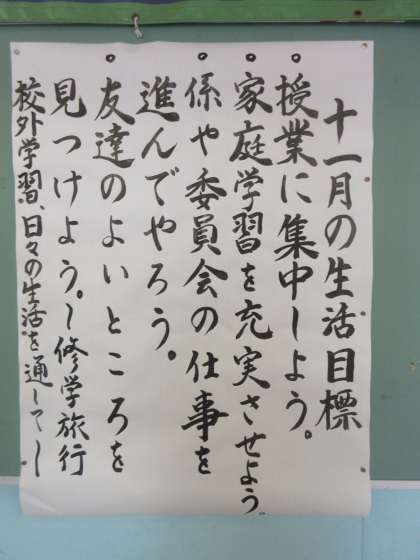 十一月の生活目標
。授業に集中しよう。
。家庭学習を充実させよう。
。係や委員会の仕事を
進んでやろう。
。友達のよいところを
見つけよう。~修学旅行
校外学習、日々の生活を通して~